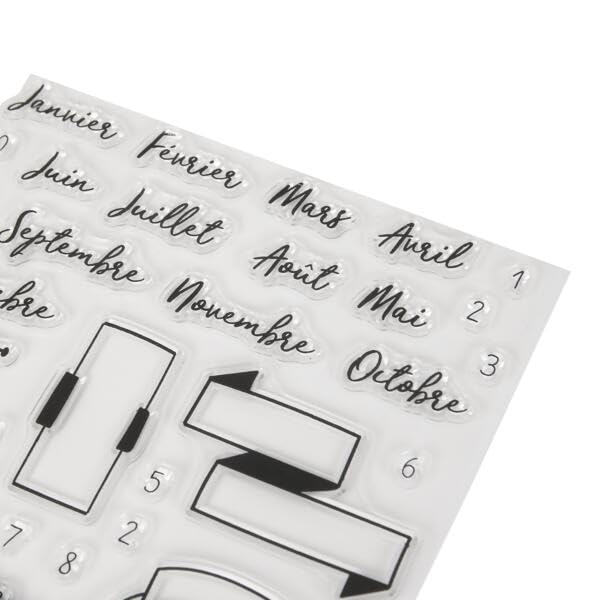 Janvier Février Mars Avril 1
Juin Juillet Août Mai 2
Septembre Novembre Octobre 3
bre
5 6
7 8 2